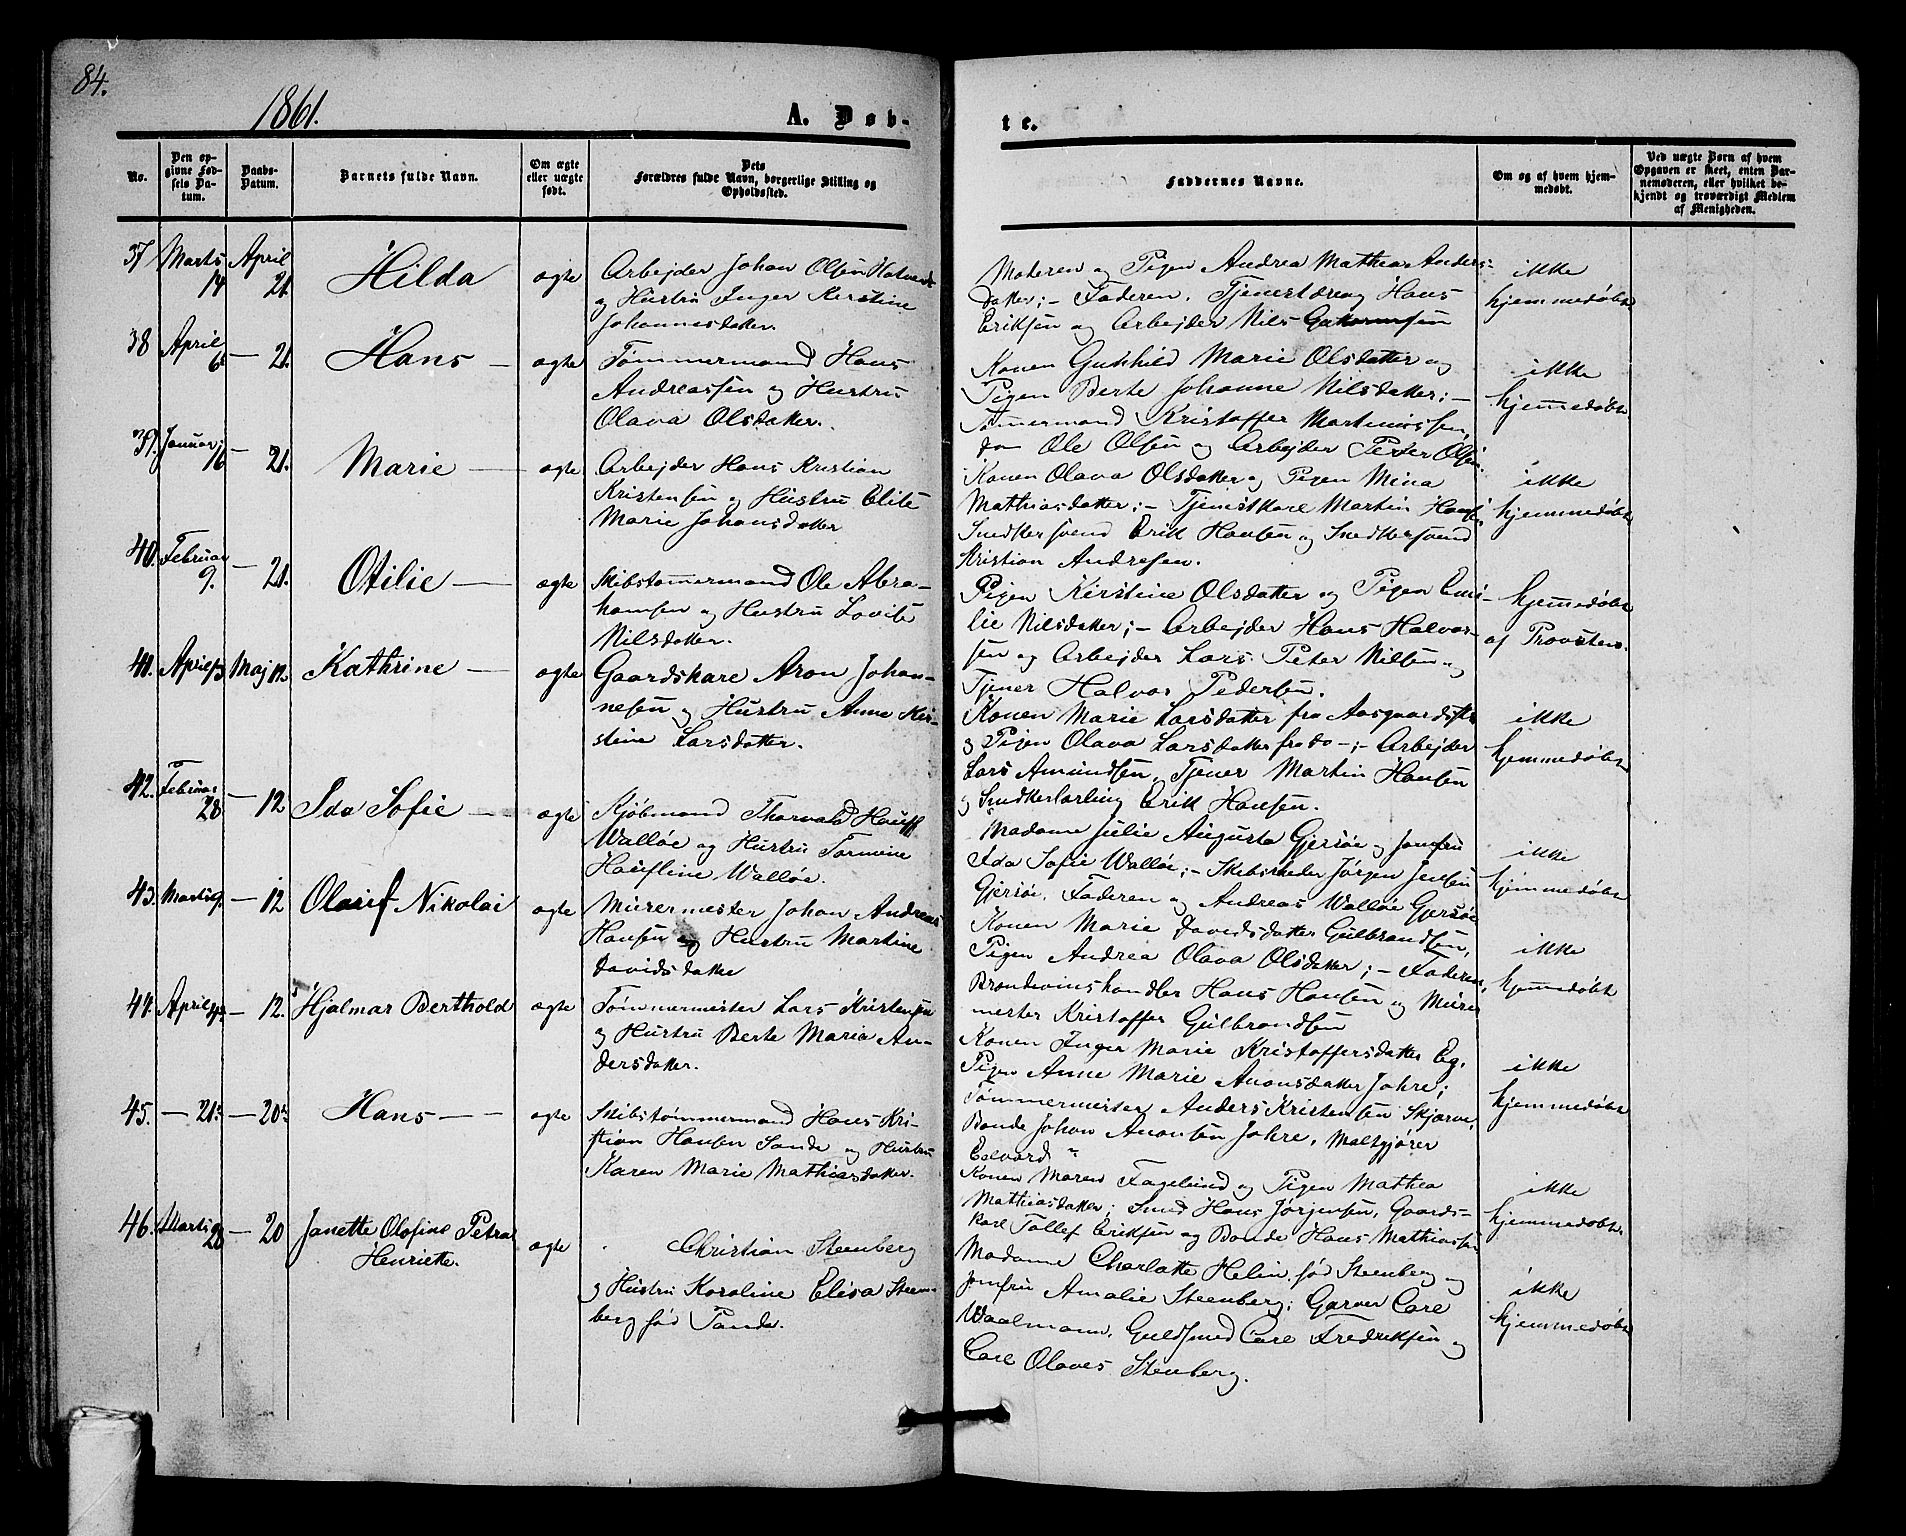 84.
1861.
A. Døb-
te.
No.
Den op-
givne Fød-
sels Da-
tum.
Daabs-
Datum.
Barnets fulde Navn.
Om ægte
eller uægte
født.
Dets
Forældres fulde Navn, borgerlige Stilling og
Opholdssted.
Faddernes Navne.
Om og af hvem hjem-
medøbt.
Ved uægte Børn af hvem
Opgaven er skeet, enten Bar-
nemoderen, eller hvilket be-
kjendt og troværdigt Medlem
af Menigheden.
37 Marts 14 April 21 Hilda ægte
Arbejder Johan Olsen
og Hustru Inger Kirstine
Johannesdatter.
Moderen og Pigen Andrea Mathea Anders-
datter; - Faderen, Tjenestdreng Hans
Eriksen og Arbejder Nils
ikke
hjemmedøbt
38 April 6 — 21. Hans — ægte
Tømmermand Hans
Andreassen og Hustru
Olava Olsdatter.
Konen Gunhild Marie Olsdatter og
Pigen Berte Johanne Nilsdatter; -
Tømmermand Kristoffer Martinussen,
do Ole Olsen og Arbejder Peter Olsen.
ikke
hjemmedøbt
39. Januar 16 — 21. Marie — ægte
Arbejder Hans Kristian
Kristensen og Hustru Elise
Marie Johansdatter
Konen Olava Olsdatter og Pigen Mina
Mathiasdatter; - Tjenestkarl Martin Hansen
Snedkersvend Erik Hansen og Snedkersvend
Kristian Andresen.
ikke
hjemmedøbt
40. Februar 9. — 21. Otilie — ægte
Skibstømmermand Ole Abra-
hamsen og Hustru Lovise
Nilsdatter.
Pigen Kirstine Olsdatter og Pigen Emi-
lie Nilsdatter; - Arbejder Hans Halvor-
sen og Arbejder Lars Peter Nilsen og
Tjener Halvor Pedersen.
hjemmedøbt
af Provsten.
41. April Maj 12. Kathrine — ægte
Gaardskarl Aron Johan-
nesen og Hustru Anne Kir-
stine Larsdatter.
Konen Marie Larsdatter fra Aasgaards
og Pigen Olava Larsdatter fra do -; - Arbejder
Lars Amundsen, Tjener Martin Hansen
og Snedkerlærling Erik Hansen.
ikke
hjemmedøbt
42. Februar 28 — 12 Ida Sofie — ægte
Kjøbmand Thorvald Hauff
Walløe og Hustru
Walløe.
Madame Julie Augusta Gjersøe og Jomfru
Ida Sofie Walløe; - Skibsrheder Jørgen Jensen
Gjersøe, Faderen og Andreas Walløe Gjersøe
ikke
hjemmedøbt
43. Marts 9. — 12 Olauf Nikolai ægte
Murermester Johan Andreas
Hansen og Hustru Martine
Davidsdatter
Konen Marie Davidsdatter Gulbrandsen,
Pigen Andrea Olava Olsdatter; - Faderen,
Brændevinshandler Hans Hansen og Murer
mester Kristoffer Gulbrandsen
ikke
hjemmedøbt
44. April — 12. Hjalmar Berthold ægte
Tømmermester Lars Kristensen
og Hustru Berte Maria An-
dersdatter.
Konen Inger Marie Kristoffersdatter Eg,
Pigen Anne Marie Anonsdatter Jahre;
Tømmermester Anders Kristensen Skjærve,
Bonde Johan Anonsen Jahre, Maltgjører
ikke
hjemmedøbt
45. — 21 — 20 Hans — ægte
Skibstømmermand Hans Kri-
stian Hansen Sande og Hustru
Karen Marie Mathiasdatter.
Konen Maren Fagelund og Pigen Mathea
Mathiasdatter; Smed Hans Jørgensen, Gaards-
karl Tollef Eriksen og Bonde Hans Mathiassen
ikke
hjemmedøbt
46. Marts 28 — 20 Janette Olofine Petra
Henriette. ægte
Christian Steenberg
og Hustru Karoline Elisa Steen-
berg fød Tande.
Madamme Charlotte Helin fød Steenberg og
Jomfru Amalie Steenberg; Garver Carl
Waalmann, Guldsmed Carl Fredriksen og
Carl Olaves Steenberg.
ikke
hjemmedøbt